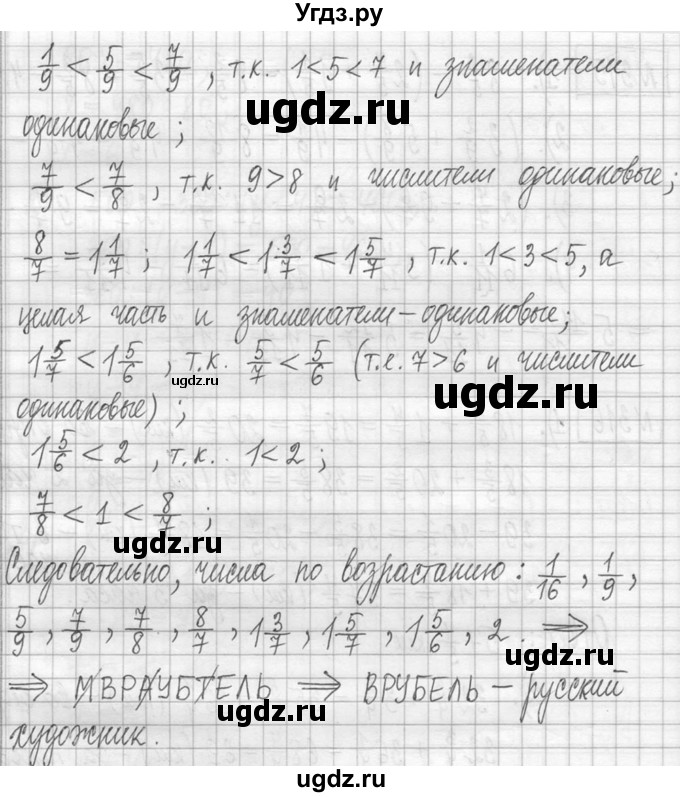 Угдз.ру
1/9 < 5/9 < 7/9 , т.к. 1<5<7 и знаменатели
ugdz.ru
одинаковые ;
7/9 < 7/8 , т.к. 9>8 и числители одинаковые;
8/7 = 1 1/7 ; 1 1/7 < 1 3/7 < 1 5/7 , т.к. 1<3<5, а
целая часть и знаменатели – одинаковые;
1 5/7 < 1 5/6 , т.к. 5/7 < 5/6 (т.е. 7>6 и числители
ugdz.ru
ugdz.ru
одинаковые) ;
1 5/6 < 2 , т.к. 1<2 ;
7/8 < 1 < 8/7 ;
ugdz.ru
Следовательно, числа по возрастанию: 1/16 , 1/9 ,
5/9 , 7/9 , 7/8 , 8/7 , 1 3/7 , 1 5/7 , 1 5/6 , 2 . ⇒
ugdz.ru
⇒ ИВРАУБТЕЛЬ ⇒ ВРУБЕЛЬ – русский
ugdz.ru
художник.
ugdz.ru